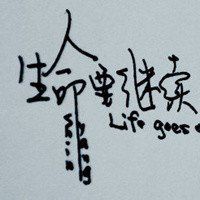 生命要继续
Life goes